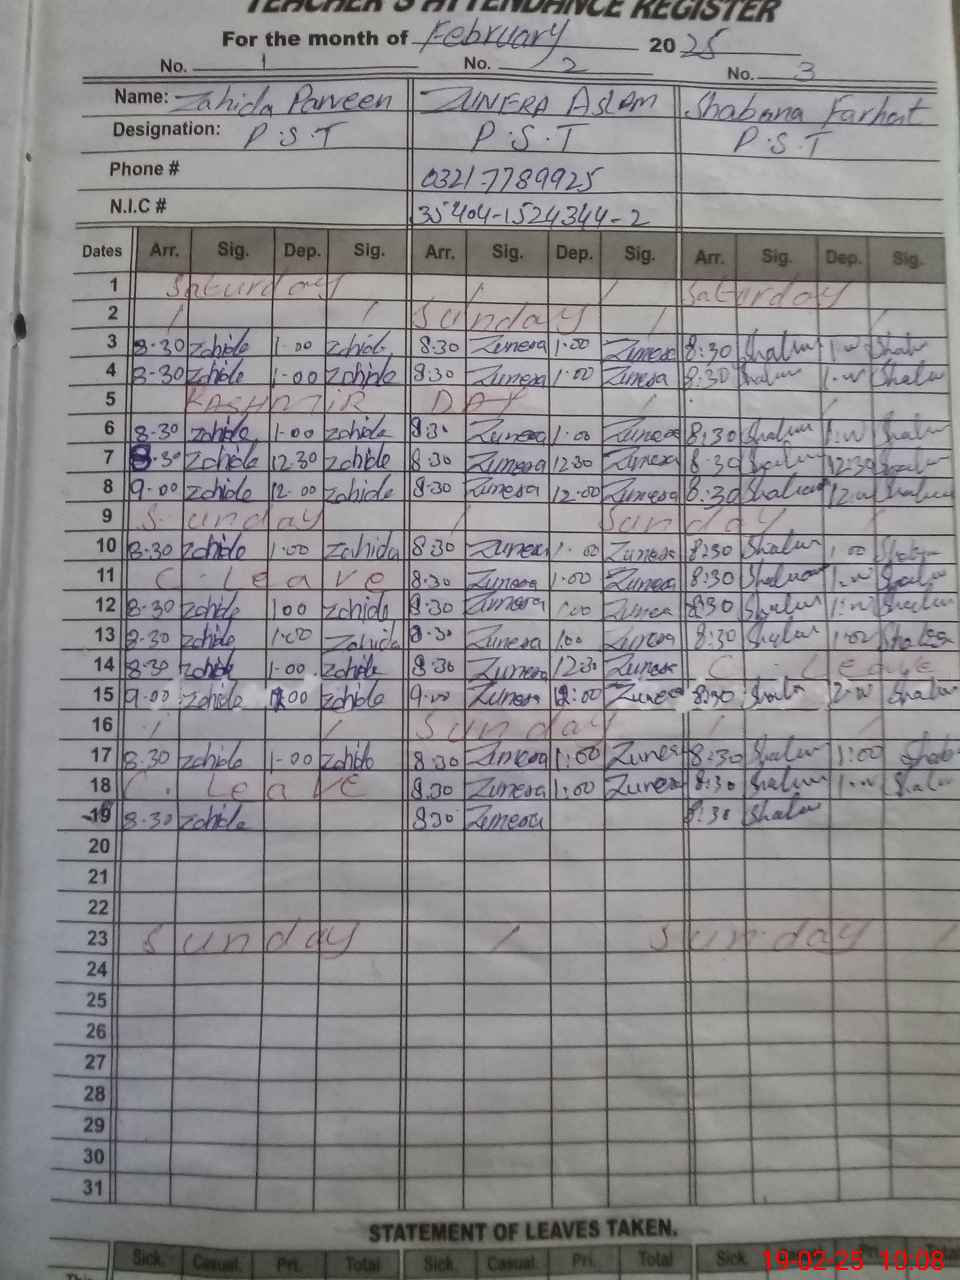 TEACHER'S ATTENDANCE REGISTER
For the month of February 2025
No. 1 No. 2 No. 3
Name: Zahida Parveen ZUNERA ASLAM Shabana Farhat
Designation: P.S.T P.S.T P.S.T
Phone # 0321-7789925
N.I.C # 35404-1524344-2
Dates Arr. Sig. Dep. Sig. Arr. Sig. Dep. Sig. Arr. Sig. Dep. Sig.
1 Saturday / / Saturday
2 / / Sunday / /
3 8-30 zahida 1-00 zahida 8:30 Zunera 1:00 Zunera 8:30
4 8-30 zahida 1-00 zahida 8:30 Zunera 1:00 Zunera 8:30
5 KASHMIR DAY / /
6 8-30 zahida 1-00 zahida 8:30 Zunera 1:00 Zunera 8:30
7 8-30 zahida 12.30 zahida 8:30 Zunera 12:30 Zunera 8:30 12:30
8 9-00 zahida 12.00 zahida 8:30 Zunera 12:00 Zunera 8:30
9 Sunday / Sunday /
10 8-30 zahida 1:00 zahida 8:30 Zunera 1:00 Zunera 8:30 1:00
11 C. leave 8:30 Zunera 1:00 Zunera 8:30
12 8-30 zahida 1:00 zahida 8:30 Zunera 1:00 Zunera 8:30
13 8-30 zahida 1:00 Zahida 8:30 Zunera 1:00 Zunera 8:30 1:00
14 8-30 zahida 1-00 zahida 8:30 Zunera 12:30 Zunera C. Leave
15 9-00 zahida zahida 9:00 Zunera 12:00 Zunera 8:30
16 / / Sunday / /
17 8.30 zahida 1-00 zahida 8:30 Zunera 1:00 Zunera 8:30 1:00
18 C. Leave 8:30 Zunera 1:00 Zunera 8:30
19 8-30 zahida 8:30 Zunera 8:30
20
21
22
23 Sunday / Sunday /
24
25
26
27
28
29
30
31
STATEMENT OF LEAVES TAKEN.
Sick. Casual. Pri. Total Sick. Casual. Pri. Total Sick.
This
19-02-25 10:08